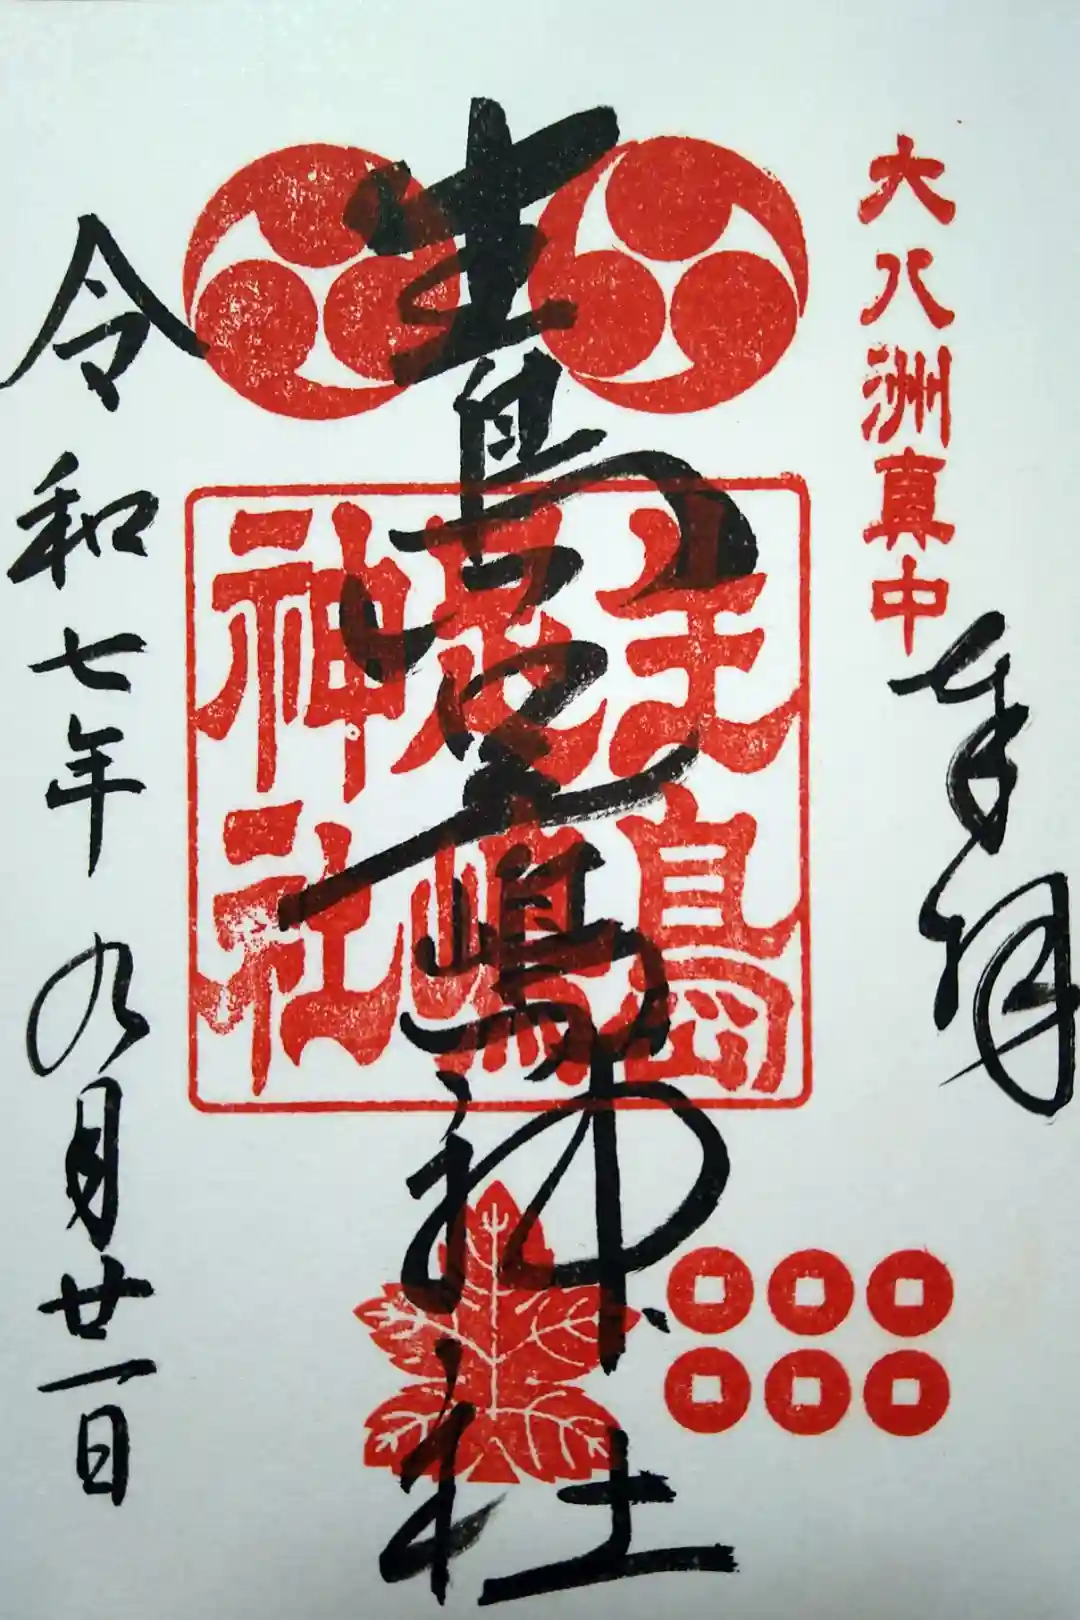 大八洲真中
奉拝
生島足嶋神社
生島
足嶋
神社
令和七年九月廿一日